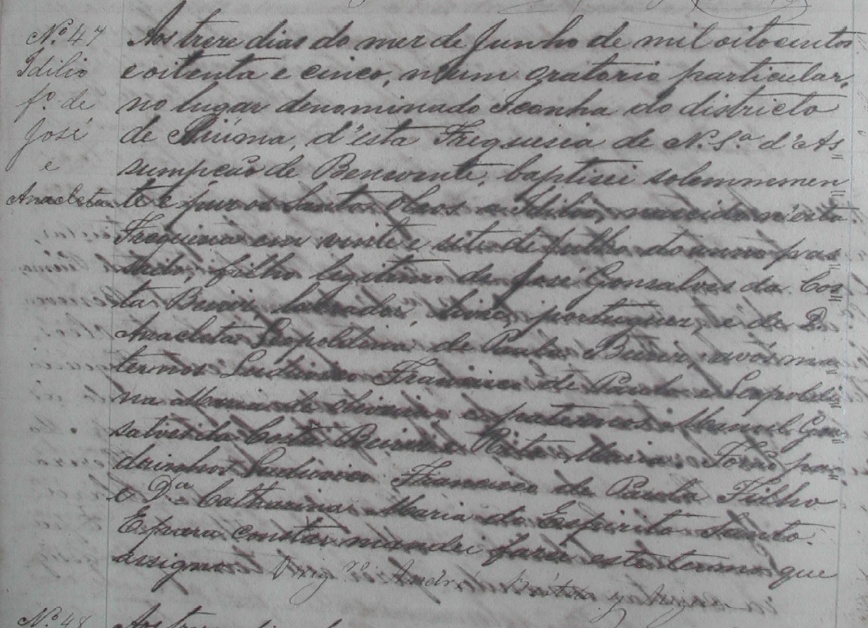 Nº 47
Idilio
fº de
José
e
Anacleta
Aos treze dias do mez de Junho de mil oitocentos
e oitenta e cinco, num oratorio particular,
no lugar denominado Iconha do districto
de Piúma, d'esta Freguesia de N. S.ª d'As=
sumpção de Benevente, baptisei solemnemen=
te e puz os Santos Oleos a Idilio, nascido n'esta
Freguesia em vinte e sete de Julho do anno pas=
sado, filho legitimo de José Gonsalves da Cos=
ta lavrador, portuguez, e de D.
Anacleta Leopoldina de Paula avós ma=
ternos Ludovico Francisco de Paula e Leopoldi=
na Maria de Oliveira e paternos Manoel Gon=
salves da Costa e Rita Maria. Forão pa=
drinhos Ludovico Francisco de Paula Filho
e D.ª Catharina Maria do Espirito Santo.
E para constar mandei fazer este termo que
assigno. O Vig.ʳᵒ André
Nº 48
Aos